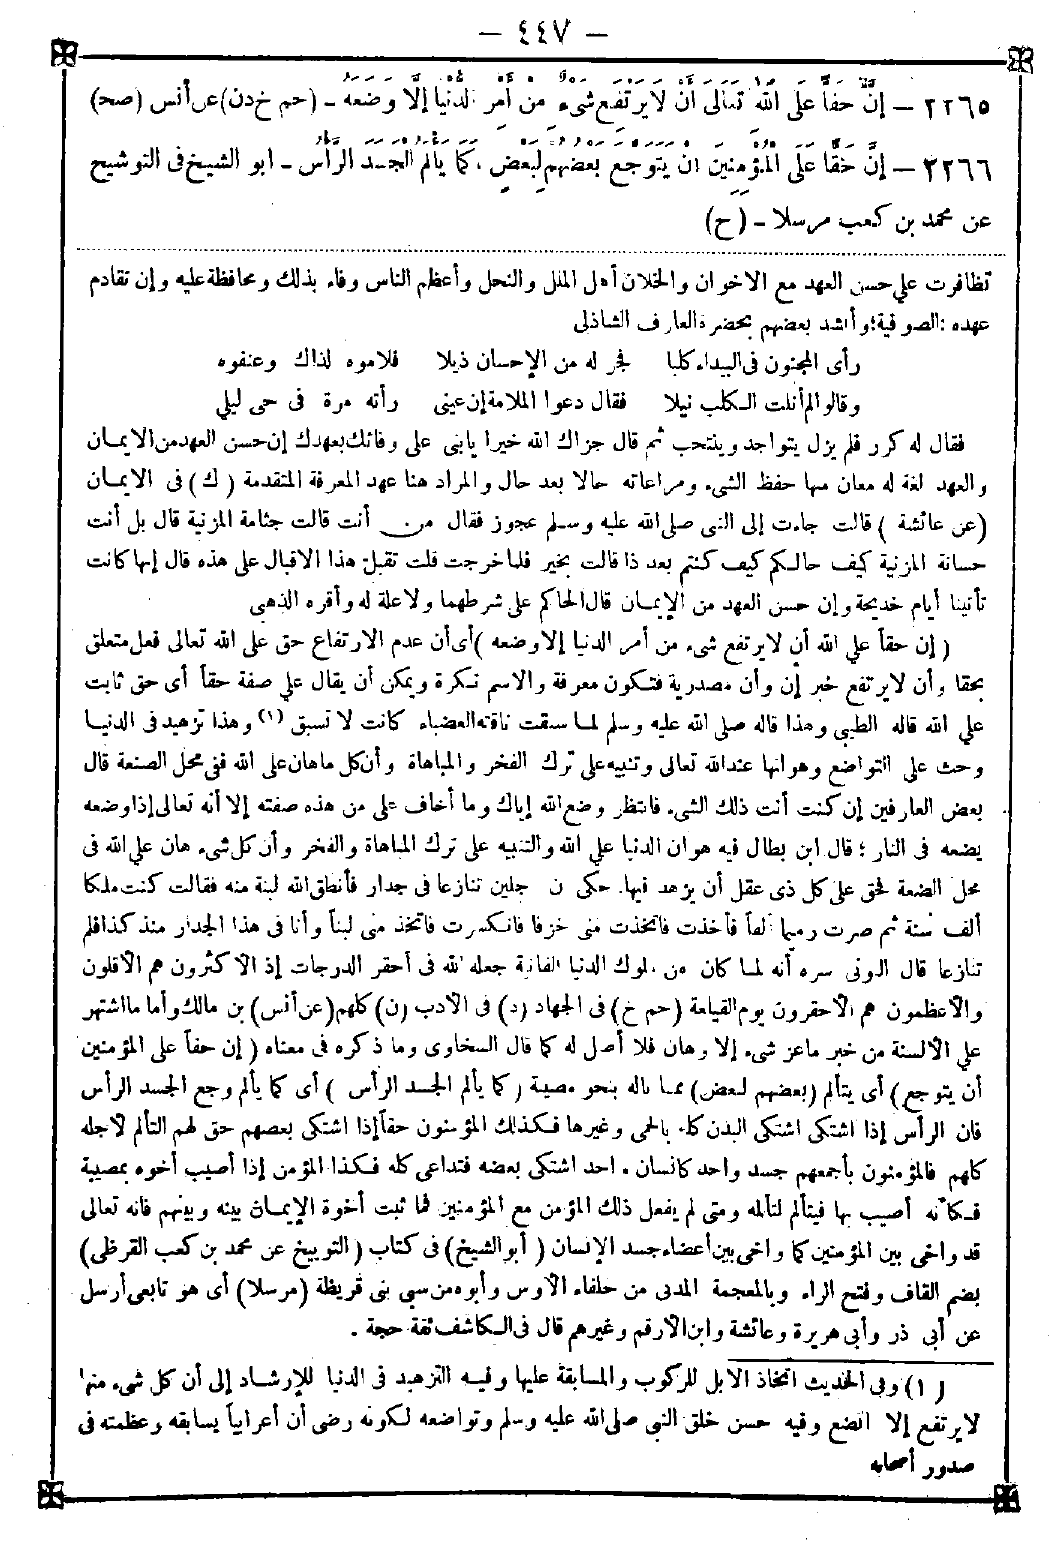 — ٤٤٧ —
٢٢٦٥ — إنَّ حقاً على الله تعالى أن لا يرتفع شيء من أمر الدنيا إلا وضعه — (حم خ د ن) عن أنس (صح)
٢٢٦٦ — إنَّ حقًّا على المؤمنين أن يتوجع بعضهم لبعض، كما يألم الجسد الرأس — أبو الشيخ في التوشيح
عن محمد بن كعب مرسلا — (ح)
تظافرت علي حسن العهد مع الاخوان والخلان أهل الملل والنحل وأعظم الناس وفاء بذلك ومحافظة عليه وإن تقادم
عهده: الصوفية؛ وأنشد بعضهم بحضرة العارف الشاذلى
رأى المجنون فى البيداء كلبا فجر له من الإحسان ذيلا فلاموه لذاك وعنفوه
وقالوا لم أنلت الكلب نيلا فقال دعوا الملامة إن عينى رأته مرة فى حى ليلي
فقال له كرر فلم يزل يتواجد وينتحب ثم قال جزاك الله خيرا يابنى على وفائك بعهدك إن حسن العهد من الايمان
والعهد لغة له معان منها حفظ الشيء ومراعاته حالا بعد حال والمراد هنا عهد المعرفة المتقدمة (ك) فى الايمان
(عن عائشة) قالت جاءت إلى النبى صلى الله عليه وسلم عجوز فقال من أنت قالت جثامة المزنية قال بل أنت
حسانة المزنية كيف حالكم كيف كنتم بعد ذا قالت بخير فلما خرجت قلت تقبل هذا الاقبال على هذه قال إنها كانت
تأتينا أيام خديجة وإن حسن العهد من الإيمان قال الحاكم على شرطهما ولا علة له وأقره الذهبى
(إن حقاً علي الله أن لا يرتفع شيء من أمر الدنيا إلا وضعه) أى أن عدم الارتفاع حق على الله تعالى فعل متعلق
بحقا وأن لا يرتفع خبر إن وأن مصدرية فتكون معرفة والاسم نكرة ويمكن أن يقال علي صفة حقاً أى حق ثابت
علي الله قاله الطيبى وهذا قاله صلى الله عليه وسلم لما سبقت ناقته العضباء كانت لا تسبق (١) وهذا تزهيد فى الدنيا
وحث علي التواضع وهوانها عند الله تعالى وتنبيه على ترك الفخر والمباهاة وأن كل ما هان على الله ففى محل الصنعة قال
بعض العارفين إن كنت أنت ذلك الشيء فانتظر وضع الله إياك وما أخاف على من هذه صفته إلا أنه تعالى إذا وضعه
يضعه فى النار؛ قال ابن بطال فيه هوان الدنيا علي الله والتنبيه على ترك المباهاة والفخر وأن كل شيء هان علي الله فى
محل الضعة فحق على كل ذى عقل أن يزهد فيها. حكى ن جلين تنازعا فى جدار فأنطق الله لبنة منه فقالت كنت ملكا
ألف سنة ثم صرت رميما ألفاً فأخذت فاتخذت منى خزفا فانكسرت فاتخذ منى لبناً وأنا فى هذا الجدار منذ كذا فلم
تنازعا قال الونى سره أنه لما كان من ملوك الدنيا الفانية جعله الله فى أحقر الدرجات إذ الاكثرون هم الأقلون
والأعظمون هم الأحقرون يوم القيامة (حم خ) فى الجهاد (د) فى الأدب (ن) كلهم (عن أنس) بن مالك وأما ما اشتهر
علي الألسنة من خبر ما عز شيء إلا وهان فلا أصل له كما قال السخاوى وما ذكره فى معناه (إن حقاً على المؤمنين
أن يتوجع) أى يتألم (بعضهم لبعض) مما ناله بنحو مصيبة (كما يألم الجسد الرأس) أى كما يألم وجع الجسد الرأس
فان الرأس إذا اشتكى اشتكى البدن كله بالحمى وغيرها فكذلك المؤمنون حقاً إذا اشتكى بعضهم حق لهم التألم لاجله
كلهم فالمؤمنون بأجمعهم جسد واحد كانسان واحد اشتكى بعضه فتداعى كله فكذا المؤمن إذا أصيب أخوه بمصيبة
فكأنه أصيب بها فيتألم لتألمه ومتى لم يفعل ذلك المؤمن مع المؤمنين فما ثبت أخوة الإيمان بينه وبينهم فانه تعالى
قد واخى بين المؤمنين كما واخى بين أعضاء جسد الإنسان (أبو الشيخ) فى كتاب (التوبيخ عن محمد بن كعب القرظى)
بضم القاف وفتح الراء وبالمعجمة المدنى من حلفاء الأوس وأبوه من سبى بنى قريظة (مرسلا) أى هو تابعى أرسل
عن أبى ذر وأبى هريرة وعائشة وابن الارقم وغيرهم قال فى الكاشف ثقة حجة.
(١) وفى الحديث اتخاذ الابل للركوب والمسابقة عليها وفيه التزهيد فى الدنيا للإرشاد إلى أن كل شيء منها
لا يرتفع إلا اتضع وفيه حسن خلق النبي صلى الله عليه وسلم وتواضعه لكونه رضى أن أعرابياً يسابقه وعظمته فى
صدور أصحابه